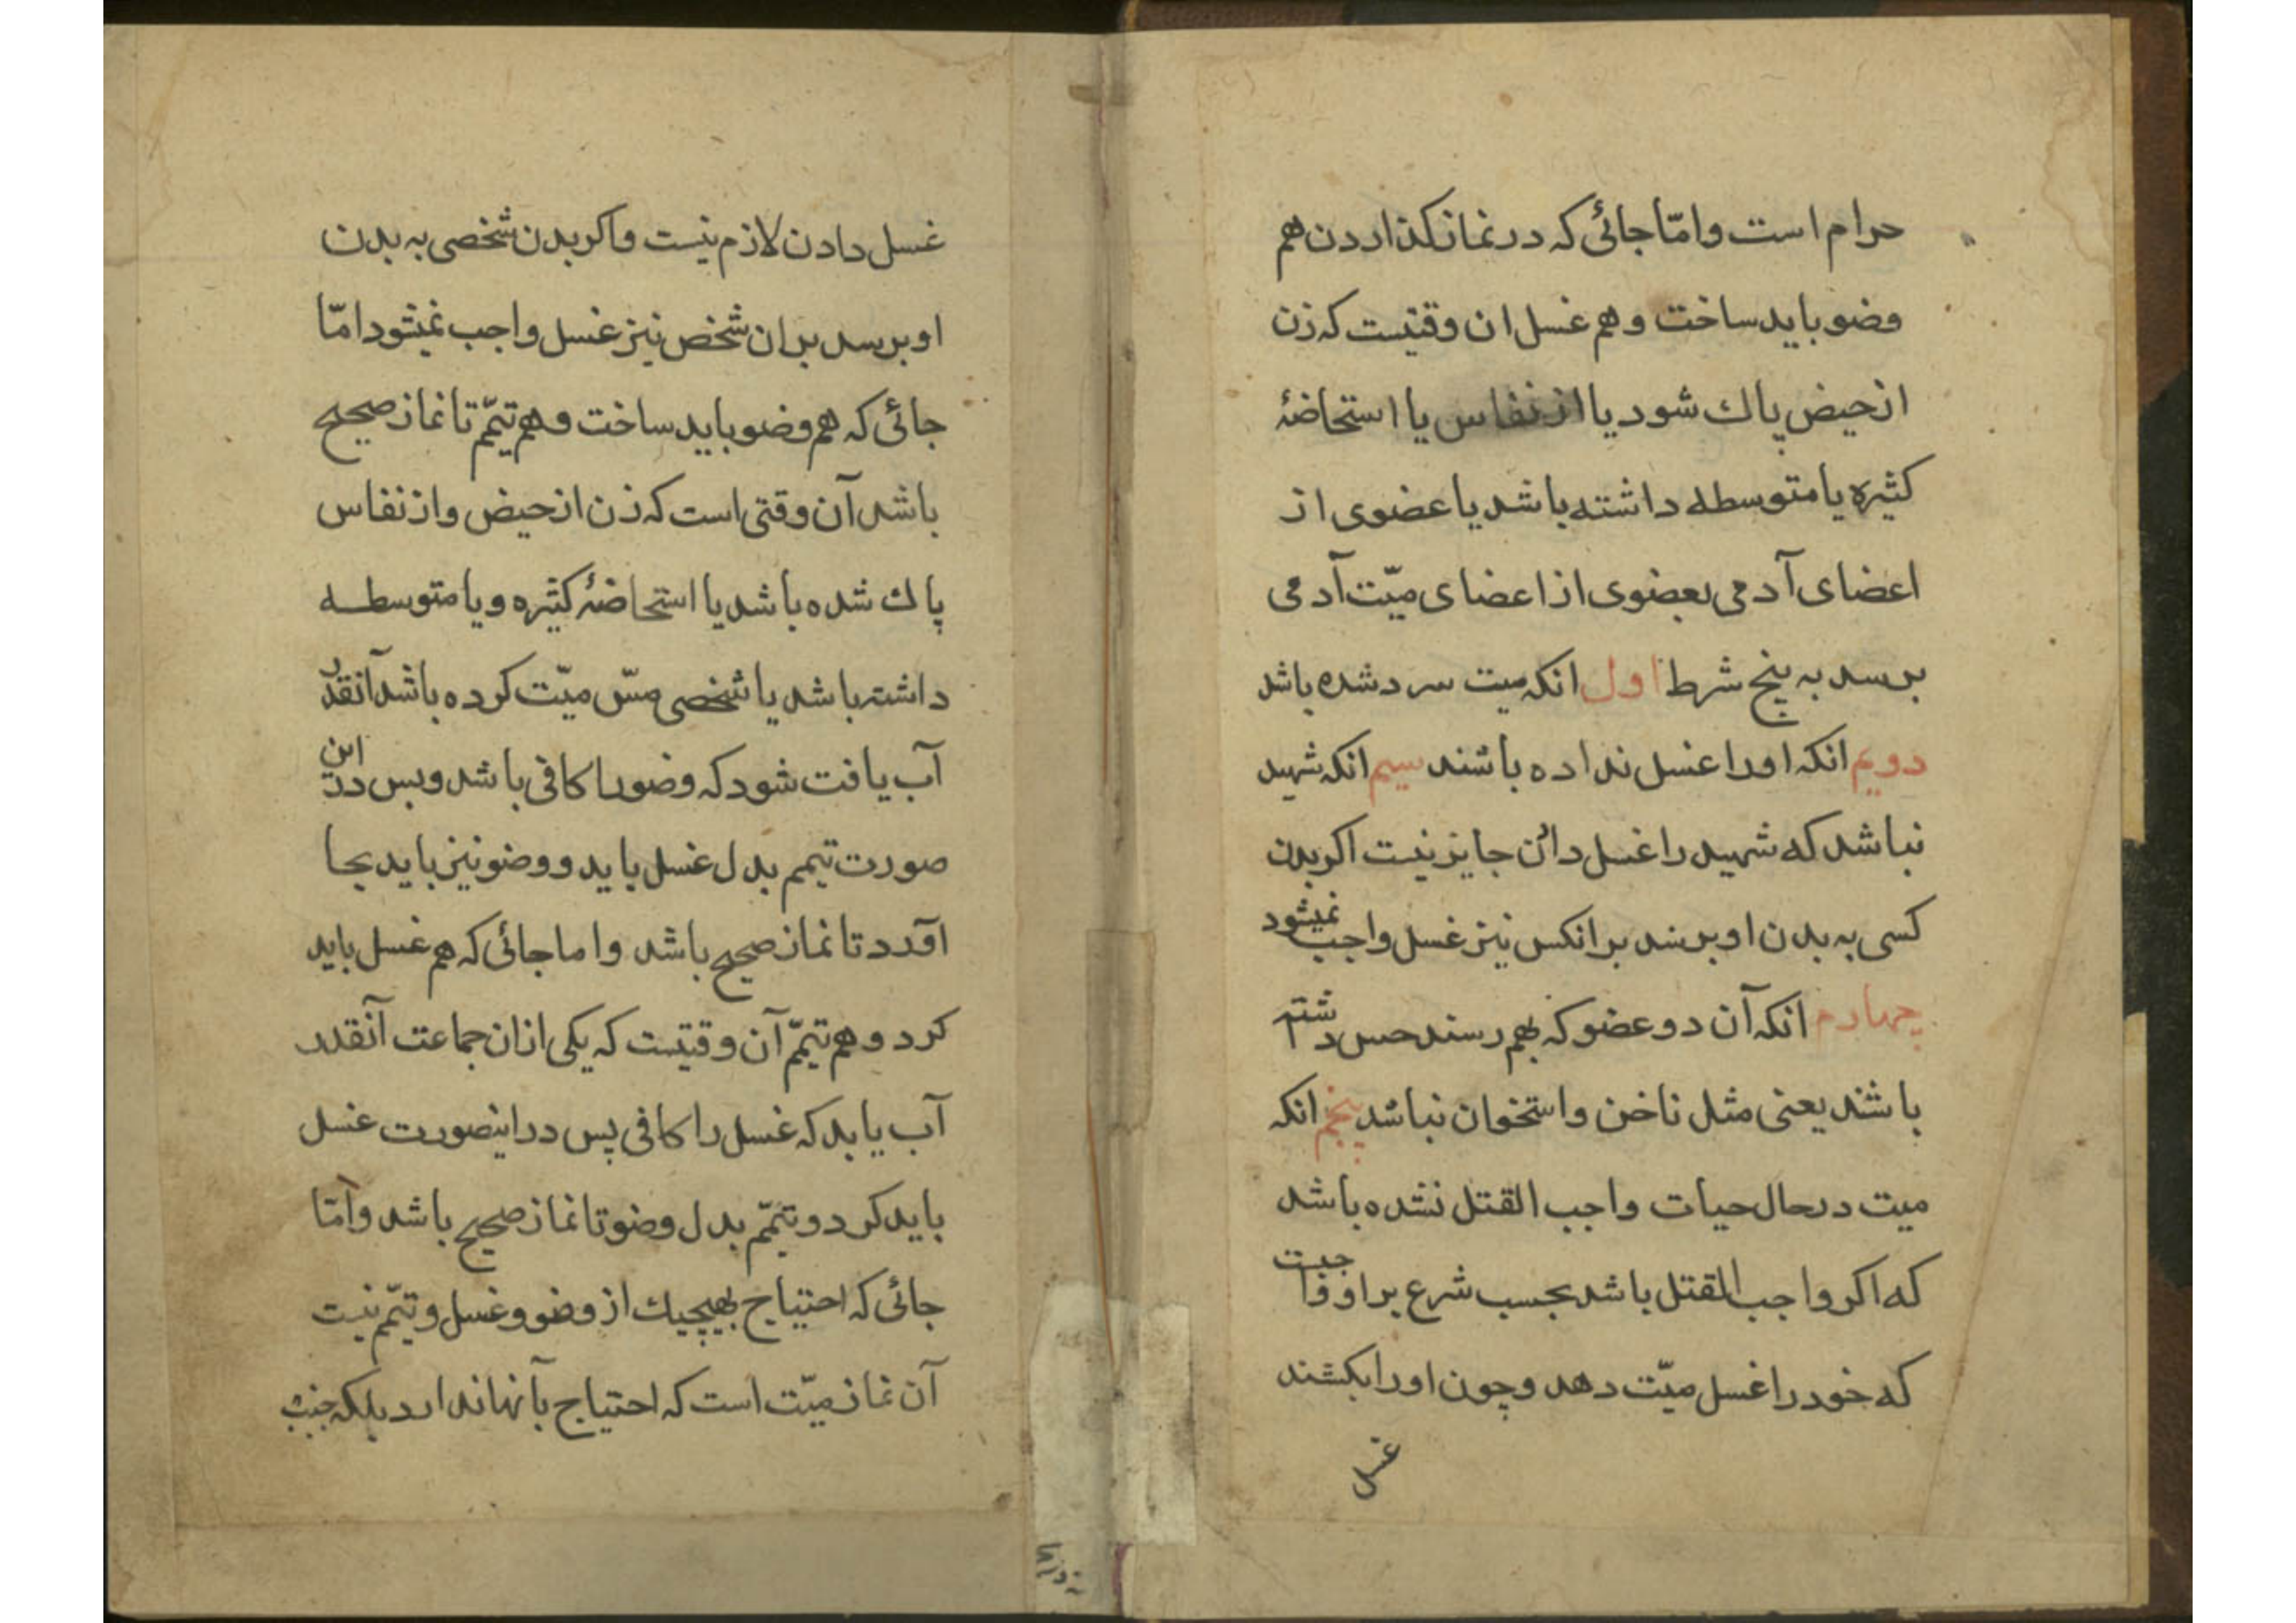 حرام است و امّا جائی که در نماز کذاردن هم
وضو باید ساخت و هم غسل ان وقتیست که زن
از حیض پاك شود یا از نفاس یا استحاضهٔ
کثیره یا متوسطه داشته باشد یا عضوی از
اعضای آدمی بعضوی از اعضای میّت آدمی
برسد به پنج شرط اول انکه میت سرد شده باشد
دویم انکه اورا غسل نداده باشند سیم انکه شهید
نباشد که شهید را غسل دادن جایز نیست اکر بدن
کسی به بدن او برسد بر انکس نیز غسل واجب نمیشود
چهارم انکه آن دو عضو که بهم رسند حس داشته
باشند یعنی مثل ناخن و استخوان نباشد پنجم انکه
میت در حال حیات واجب القتل نشده باشد
که اکر واجب القتل باشد بحسب شرع بر او واجبست
که خود را غسل میّت دهد و چون اورا بکشند
غسل
غسل دادن لازم نیست و اکر بدن شخصی به بدن
او برسد بر ان شخص نیز غسل واجب نمیشود امّا
جائی که هم وضو باید ساخت و هم تیمّم تا نماز صحیح
باشد آن وقتی است که زن از حیض و از نفاس
پاك شده باشد یا استحاضهٔ کثیره و یا متوسطه
داشته باشد یا شخصی مسّ میّت کرده باشد آنقدر
آب یافت شود که وضورا کافی باشد و بس در این
صورت تیمم بدل غسل باید و وضو نیز باید بجا
آورد تا نماز صحیح باشد و اما جائی که هم غسل باید
کرد و هم تیمّم آن وقتیست که یکی از ان جماعت آنقدر
آب یابد که غسل را کافی پس در اینصورت غسل
باید کرد و تیمّم بدل وضو تا نماز صحیح باشد و امّا
جائی که احتیاج بهیچیك از وضو و غسل و تیمّم نیست
آن نماز میّت است که احتیاج بآنها ندارد بلکه جنب